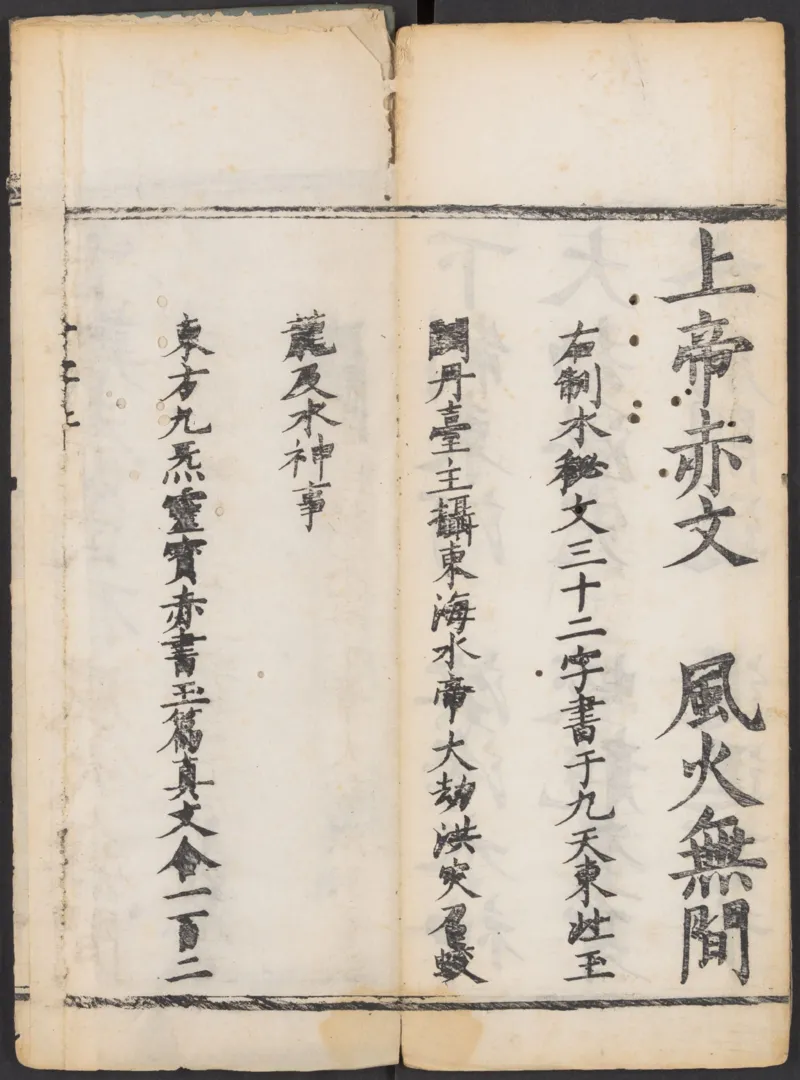 上帝赤文　風火無間
右制水秘文三十二字書于九天東北玉
闕丹臺主攝東海水帝大劫洪灾召蛟
龍及水神事
東方九炁靈寶赤書玉篇真文合一百二